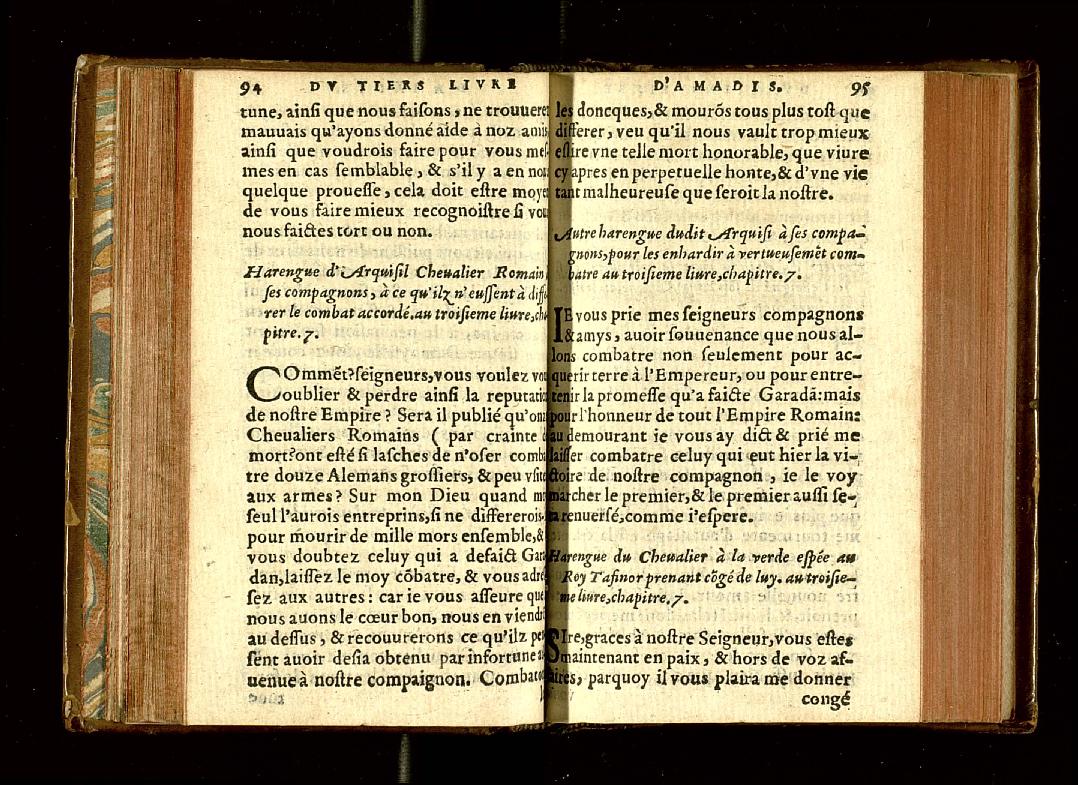 94 DV TIERS LIVRE
tune, ainſi que nous faiſons, ne trouueret
mauuais qu'ayons donné aide à noz amis,
ainſi que voudrois faire pour vous meſ-
mes en cas ſemblable, & s'il y a en nou
quelque proueſſe, cela doit eſtre moye
de vous faire mieux recognoiſtre ſi vou
nous faictes tort ou non.
Harengue d'Arquiſil Cheualier Romain
ſes compagnons, à ce qu'ilz n'euſſent à diffe
rer le combat accordé.au troiſieme liure,cha
pitre. 7.
COmmēt?ſeigneurs,vous voulez vou
oublier & perdre ainſi la reputatio
de noſtre Empire? Sera il publié qu'onz
Cheualiers Romains ( par crainte d
mort?ont eſté ſi laſches de n'oſer comba
tre douze Alemans groſſiers, & peu vſite
aux armes? Sur mon Dieu quand mo
ſeul l'aurois entreprins,ſi ne differerois-
pour mourir de mille mors enſemble,&
vous doubtez celuy qui a defaict Gara
dan,laiſſez le moy cōbatre, & vous adreſ
ſez aux autres: car ie vous aſſeure que
nous auons le cœur bon, nous en viendrō
au deſſus, & recouurerons ce qu'ilz pen
ſent auoir deſia obtenu par infortune a
uenue à noſtre compaignon. Combaton
D'AMADIS. 95
les doncques,& mourōs tous plus toſt que
differer, veu qu'il nous vault trop mieux
eſlire vne telle mort honorable, que viure
cy apres en perpetuelle honte,& d'vne vie
tant malheureuſe que ſeroit la noſtre.
Autre harengue dudit Arquiſi à ſes compa-
gnons,pour les enhardir à vertueuſemēt com-
batre au troiſieme liure,chapitre. 7.
IE vous prie mes ſeigneurs compagnons
& amys, auoir ſouuenance que nous al-
lons combatre non ſeulement pour ac-
querir terre à l'Empereur, ou pour entre-
tenir la promeſſe qu'a faicte Garadā: mais
pour l'honneur de tout l'Empire Romain:
au demourant ie vous ay dict & prié me
laiſſer combatre celuy qui eut hier la vi-
ctoire de noſtre compagnon, ie le voy
marcher le premier,& le premier auſſi ſe-
ra renuerſé,comme i'eſpere.
Harengue du Cheualier à la verde eſpée au
Roy Tafinor prenant cōgé de luy. au troiſie-
me liure,chapitre. 7.
SIre,graces à noſtre Seigneur,vous eſtes
maintenant en paix, & hors de voz af-
faires, parquoy il vous plaira me donner
congé